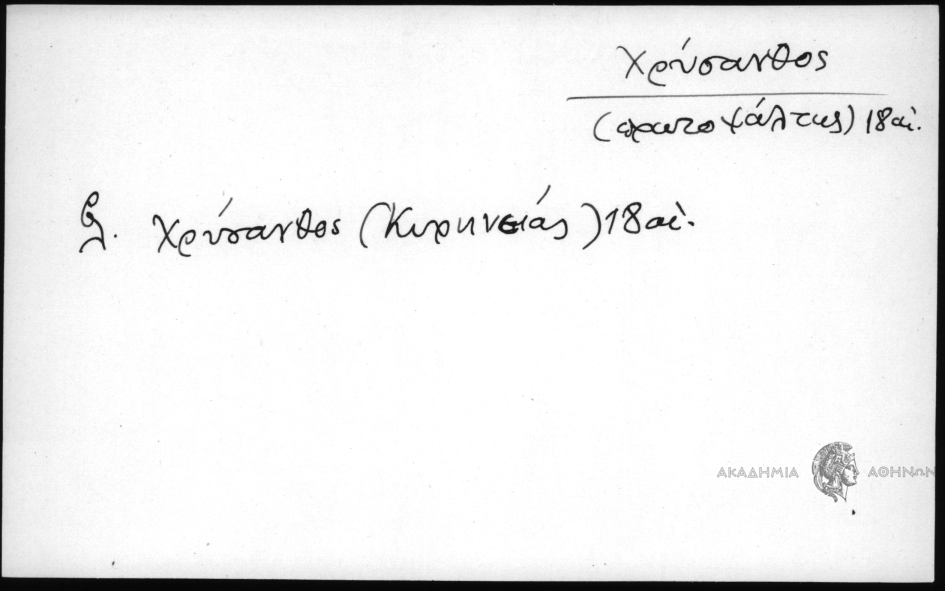 Χρύσανθος
(πρωτοψάλτης) 18 αἰ.
βλ. Χρύσανθος (Κυρηνείας) 18 αἰ.
ΑΚΑΔΗΜΙΑ ΑΘΗΝΩΝ